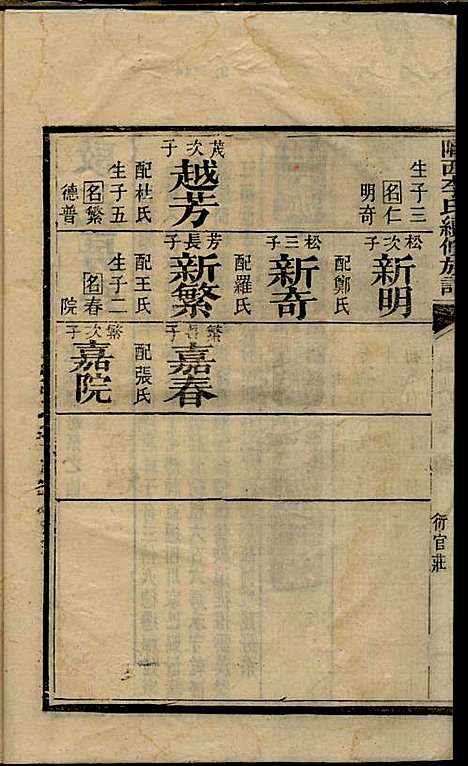 隴西李氏續修族譜
衍官莊
生子三
名仁
明奇
茂次子
越芳
配杜氏
生子五
名繁
德普
松次子
新明
配鄭氏
松三子
新奇
配羅氏
芳長子
新繁
配王氏
生子二
名春
院
繁長子
嘉春
配張氏
繁次子
嘉院